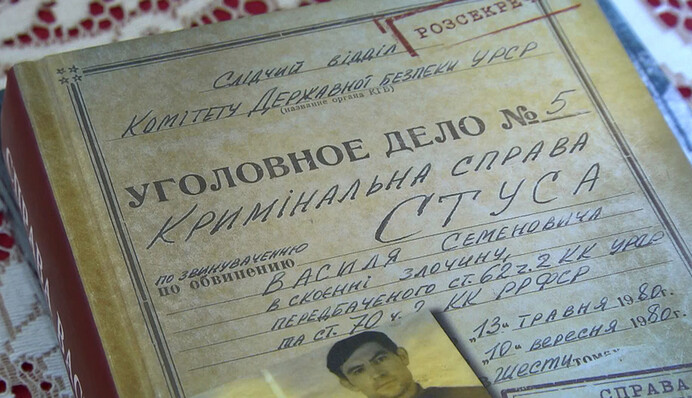 РОЗСЕКРЕ
СЛІДЧИЙ ВІДДІЛ
КОМІТЕТУ ДЕРЖАВНОЇ БЕЗПЕКИ УРСР
(название органа КГБ)
УГОЛОВНОЕ ДЕЛО № 5
КРИМІНАЛЬНА СПРАВА
СТУСА
ПО ЗВИНУВАЧЕННЮ
по обвинению
ВАСИЛЯ СЕМЕНОВИЧА
В СКОЄННІ ЗЛОЧИНУ,
ПЕРЕДБАЧЕНОГО СТ. 62 Ч. 2 КК УРСР
ТА СТ. 70 Ч. 2 КК РРФСР
„13" ТРАВНЯ 1980г.
„10" ВЕРЕСНЯ 1980г.
В ШЕСТИ ТОМ
СПРАВА
СПРАВА ВАС